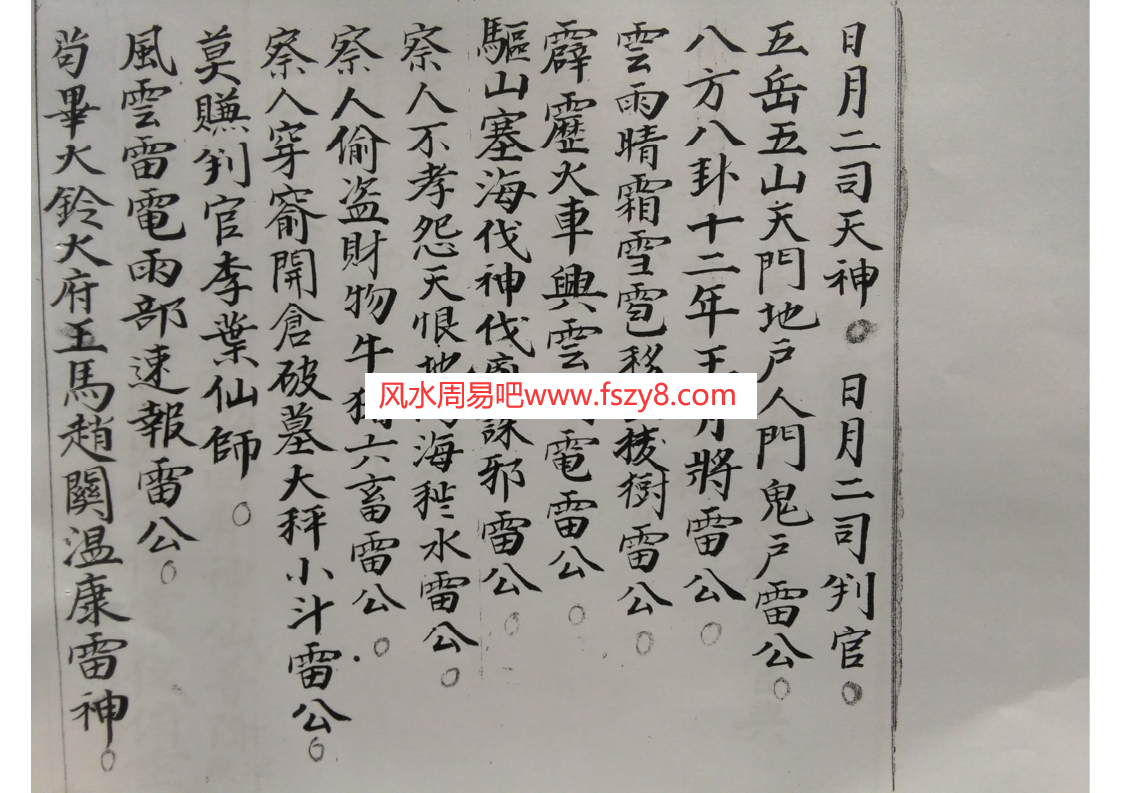 日月二司天神。日月二司判官。
五岳五山天門地戶人門鬼戶雷公。
八方八卦十二年王月將雷公。
雲雨晴霜雪雹移拔樹雷公。
霹靂火車興雲電雷公。
驅山塞海伐神伐廟誅邪雷公。
察人不孝怨天恨地海水雷公。
察人偷盗財物牛猪六畜雷公。
察人穿窬開倉破墓大秤小斗雷公。
莫賺判官李葉仙師。
風雲雷電雨部速報雷公。
苟畢大鈴大府王馬趙關温康雷神。
风水周易吧www.fszy8.com